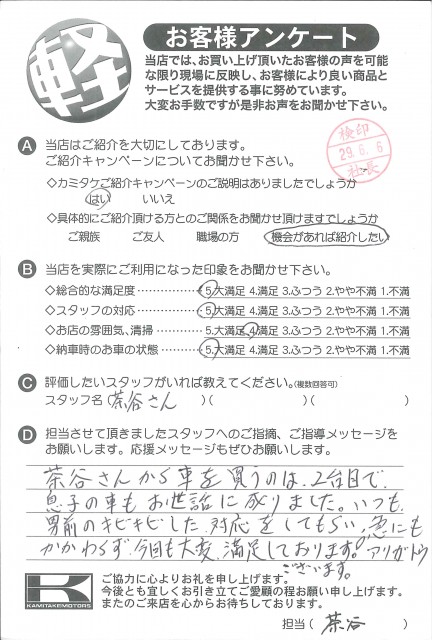 軽
お客様アンケート
当店では、お買い上げ頂いたお客様の声を可能
な限り現場に反映し、お客様により良い商品と
サービスを提供する事に努めています。
大変お手数ですが是非お声をお聞かせ下さい。
検印
29.6.6
社長
A 当店はご紹介を大切にしております。
ご紹介キャンペーンについてお聞かせ下さい。
◇カミタケご紹介キャンペーンのご説明はありましたでしょうか
はい いいえ
◇具体的にご紹介頂ける方とのご関係をお聞かせ頂けますでしょうか
ご親族 ご友人 職場の方 機会があれば紹介したい
B 当店を実際にご利用になった印象をお聞かせ下さい。
◇総合的な満足度‥‥‥‥‥‥5.大満足 4.満足 3.ふつう 2.やや不満 1.不満
◇スタッフの対応‥‥‥‥‥‥5.大満足 4.満足 3.ふつう 2.やや不満 1.不満
◇お店の雰囲気、清掃‥‥‥‥5.大満足 4.満足 3.ふつう 2.やや不満 1.不満
◇納車時のお車の状態‥‥‥‥5.大満足 4.満足 3.ふつう 2.やや不満 1.不満
C 評価したいスタッフがいれば教えてください。(複数回答可)
スタッフ名(茶谷さん )( )( )
D 担当させて頂きましたスタッフへのご指摘、ご指導メッセージを
お願いします。応援メッセージもぜひお願いします。
茶谷さんから車を買うのは、2台目で、
息子の車もお世話に成りました。いつも、
男前のキビキビした対応をしてもらい、急にも
かかわらず、今回も大変、満足しております。アリガトウ
ございます。
K
KAMITAKEMOTORS
ご協力に心よりお礼を申し上げます。
今後とも宜しくお引き立てご愛顧の程お願い申し上げます。
またのご来店を心からお待ちしております。
担当( 茶谷 )